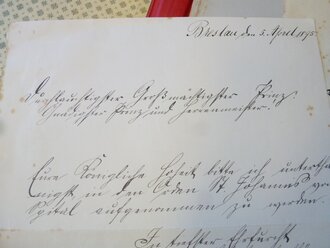 Breslau den 5. April 1875.
Durchlauchtigster Großmächtigster Prinz,
Gnädigster Prinz und Herrenmeister.
Eure Königliche Hoheit bitte ich unterthä-
nigst in den Orden St. Johannis vom
Spital aufgenommen zu werden.
In tiefster Ehrfurcht